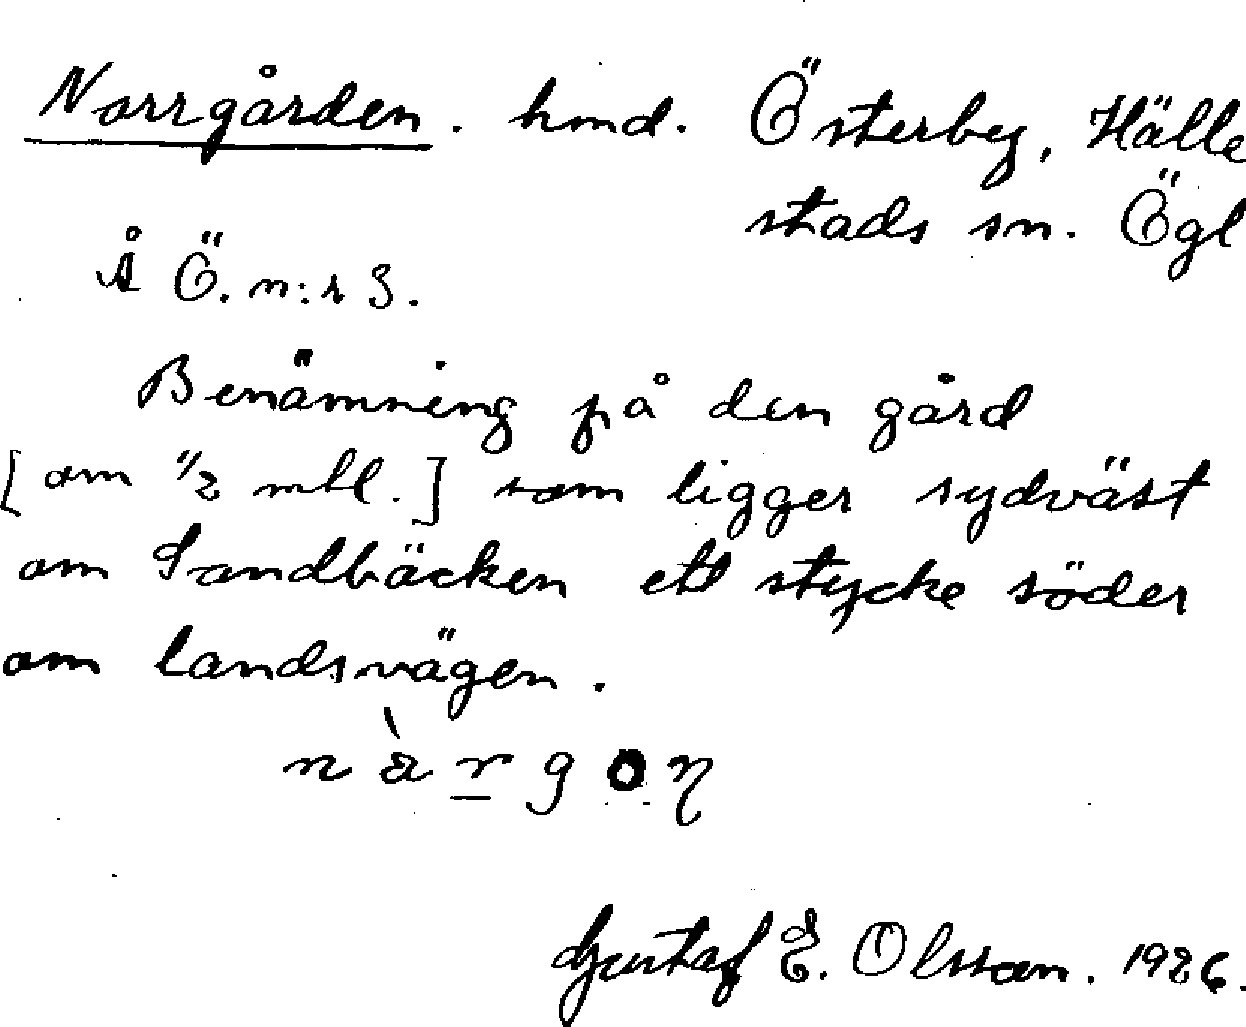 Norrgården. hmd. Österby, Hälle
stads sn. Ögl
Å Ö. n:r 3.
Benämning på den gård
[om 1/2 mtl.] som ligger sydväst
om Sandbäcken ett stycke söder
om landsvägen.
Gustaf E. Olsson. 1926.